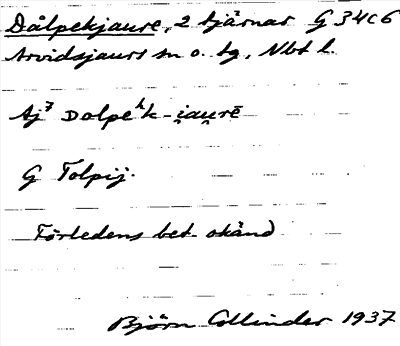 Dålpekjaure, 2 tjärnar G 34c6
Arvidsjaurs sn o. tg, Nbt l.
Aj⁷ Dalpeʰk-i̯au̯rē
G Tolpij.
Förledens bet. okänd
Björn Collinder 1937